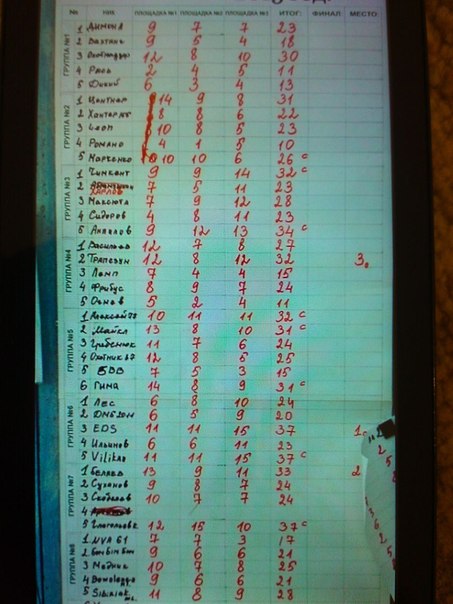 № НИК ПЛОЩАДКА №1 ПЛОЩАДКА №2 ПЛОЩАДКА №3 ИТОГ: ФИНАЛ МЕСТО
ГРУППА №1
1 Димона 9 7 7 23
2 Вахтанг 9 5 4 18
3 12 8 10 30
4 Рись 2 4 5 11
5 Дикий 6 3 4 13
ГРУППА №2
1 14 9 8 31
2 8 8 6 22
3 Leon 10 8 5 23
4 Романо 4 1 5 10
5 Марченко 10 10 6 26 с
ГРУППА №3
1 Чимкент 9 9 14 32 с
2 Харлов 7 5 11 23
3 Максюта 7 9 12 28
4 Сидоров 4 8 11 23
5 9 12 13 34 с
ГРУППА №4
1 Васильев 12 7 8 27
2 Трапезун 12 8 12 32 3.
3 Ламп 7 4 4 15
4 Фрибус 8 9 7 24
5 Оснав 5 2 4 11
ГРУППА №5
1 Алексей78 10 11 11 32 с
2 Майкл 13 8 10 31 с
3 Гребенюк 11 7 6 24
4 Охотник 67 12 8 5 25
5 БВВ 7 5 3 15
6 Гима 14 8 9 31 с
ГРУППА №6
1 Лес 6 8 10 24
2 6 5 9 20
3 EDS 11 11 15 37 1
4 Ильинов 6 6 11 23
5 Vilikan 11 11 15 37 с
ГРУППА №7
1 Беляев 13 9 11 33 2
2 Суханов 9 8 7 24
3 Скобелев 10 7 7 24
4
5 12 15 10 37 с
ГРУППА №8
1 NVA 61 7 7 3 17
2 Бимбимбом 9 6 6 21
3 Медник 10 7 8 25
4 9 6 6 21
5 Sibiriak 11 8 9 28